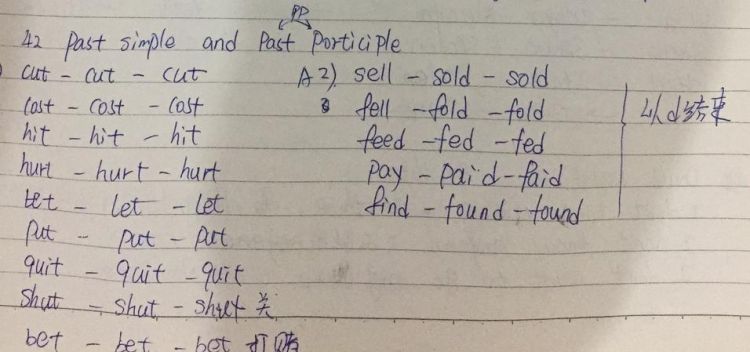 PP
42 Past simple and Past Porticiple
cut - cut - cut
cost - cost - cost
hit - hit - hit
hurt - hurt - hurt
let - let - let
put - put - put
quit - quit - quit
shut - shut - shut 关
bet - bet - bet 打赌
A2). sell - sold - sold
fell - fold - fold
feed - fed - fed
pay - paid - paid
find - found - found
以d结束